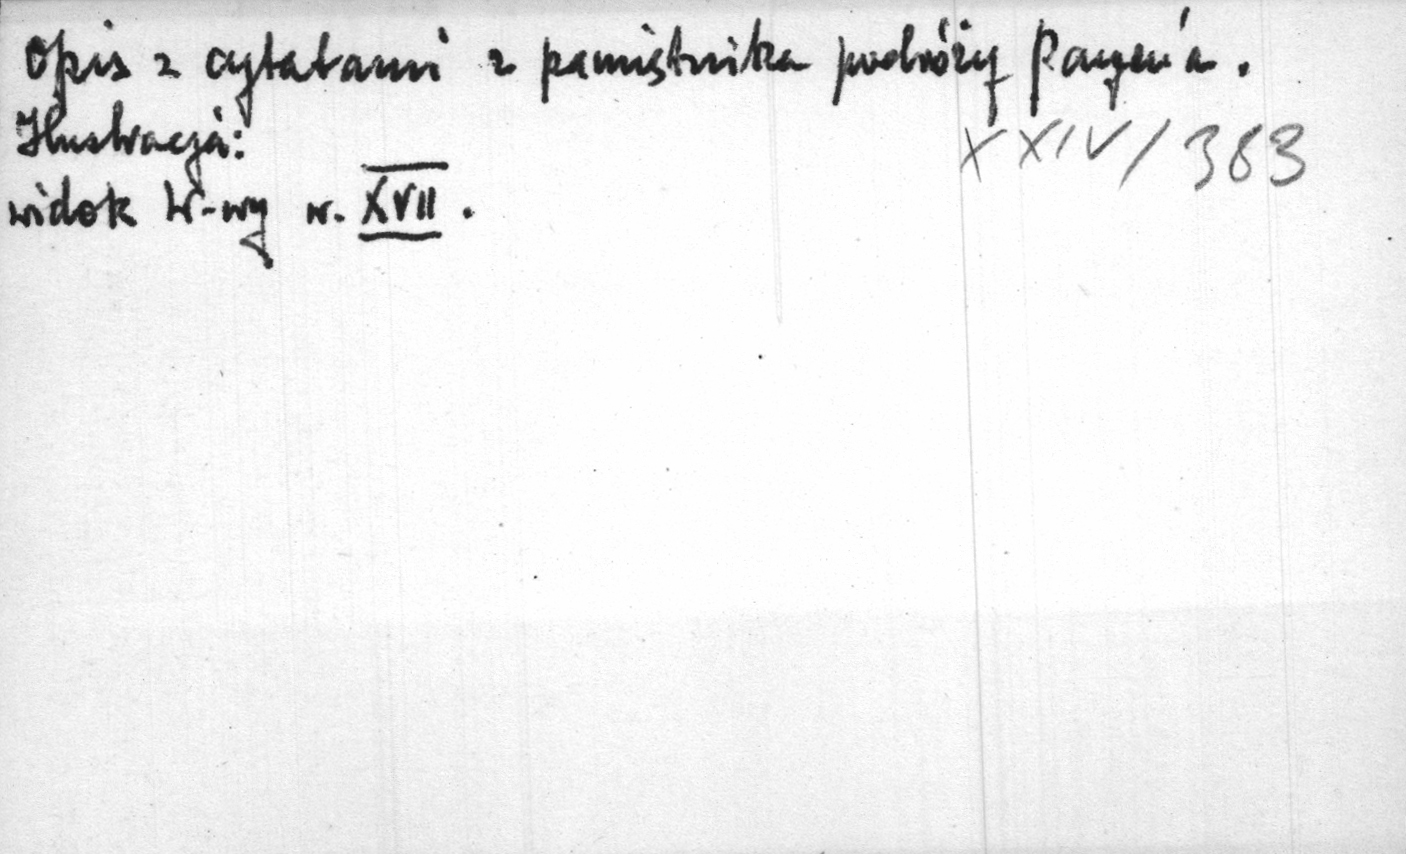 Opis z cytatami z pamiętnika podróży Payen'a.
Ilustracja:
XXIV/383
widok W-wy w. XVII.